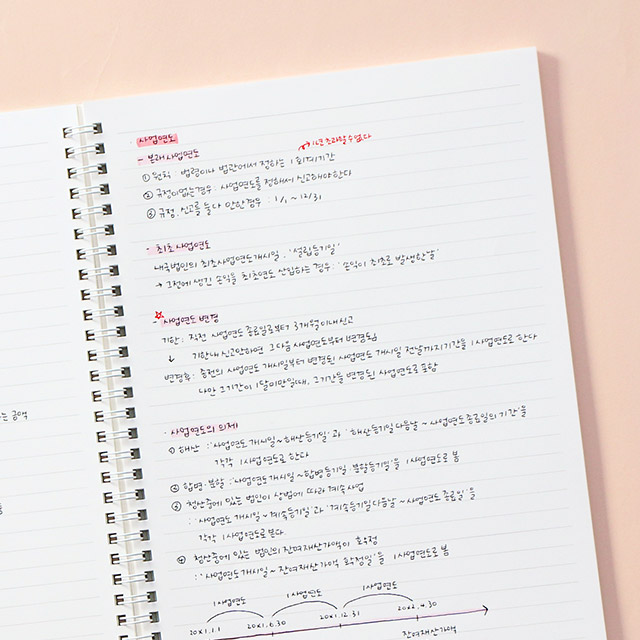 사업연도
- 본래사업연도
↗ 1년 초과할수없다
① 원칙 : 법령이나 법관에서 정하는 1회계기간
② 규정이없는경우 : 사업연도를 정해서 신고해야한다
③ 규정, 신고를 둘다 안한경우 : 1/1 ~ 12/31
- 최초사업연도
내국법인의 최초사업연도개시일 : '설립등기일'
→ 그전에 생긴 손익들 최초연도 산입하는 경우 : '손익이 최초로 발생한날'
☆
- 사업연도 변경
기한 : 직전 사업연도 종료일로부터 3개월이내신고
↓ 기한내 신고안하면 그다음 사업연도부터 변경됨
변경후 : 종전의 사업연도 개시일부터 변경된 사업연도 개시일 전날까지기간을 1사업연도로한다
다만 그기간이 1달미만일때, 그기간을 변경된 사업연도로 포함
· 사업연도의 의제
① 해산 : '사업연도 개시일~해산등기일'과 '해산등기일다음날 ~ 사업연도종료일의 기간'을
각각 1사업연도로 한다
② 합병·분할 : '사업연도개시일~합병등기일·분할등기일'을 1사업연도로 봄
③ 청산중에 있는 법인이 상법에 따라 계속사업
: '사업연도 개시일~계속등기일'과 '계속등기일다음날 ~ 사업연도 종료일'을
각각 1사업연도로본다
④ 청산중에 있는 법인의 잔여재산가액이 확정
: '사업연도개시일~잔여재산가액 확정일'을 1사업연도로 봄
1사업연도 1사업연도 1사업연도
20x1.1.1 20x1.6.30 20x1.12.31 20x2.4.30
잔여재산가액
는 금액